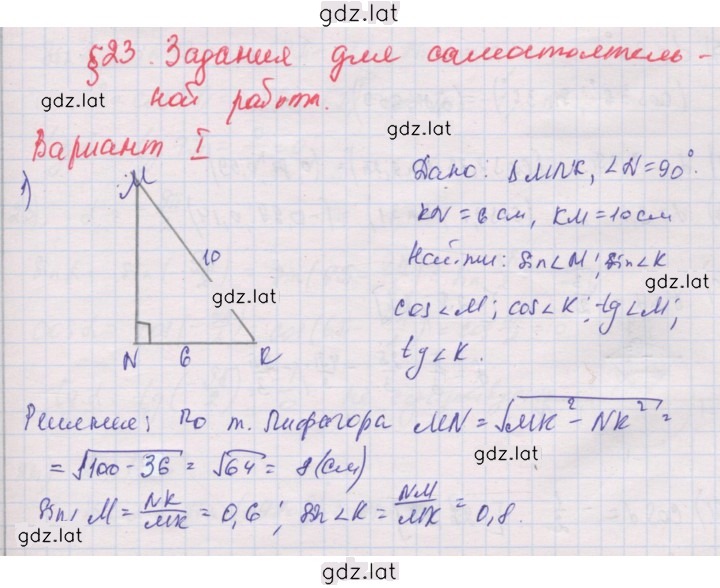 gdz.lat
§23. Задания для самостоятель-
ной работы.
gdz.lat
gdz.lat
Вариант I
1)
M
10
N 6 K
gdz.lat
Дано: ΔMNK, ∠N=90°.
KN=6см, KM=10см
Найти: sin∠M; sin∠K
gdz.lat
cos∠M; cos∠K; tg∠M;
tg∠K.
Решение: По т. Пифагора MN = √MK² - NK² =
= √100-36 = √64 = 8 (см)
gdz.lat
sin∠M = NK/MK = 0,6; sin∠K = NM/MK = 0,8.
gdz.lat
gdz.lat